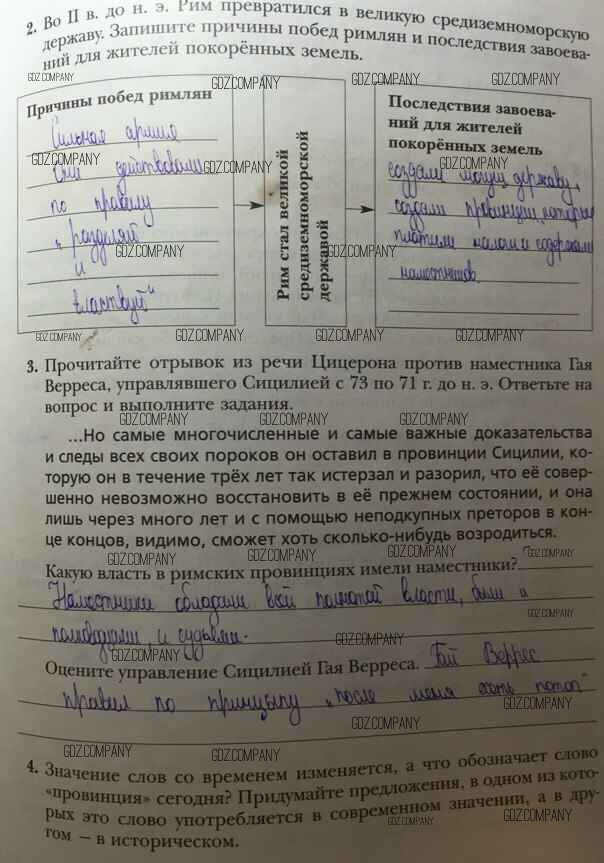 2. Во II в. до н. э. Рим превратился в великую средиземноморскую
державу. Запишите причины побед римлян и последствия завоева-
ний для жителей покорённых земель.
GDZ.COMPANY GDZ.COMPANY GDZ.COMPANY GDZ.COMPANY
Причины побед римлян
Сильная армия
Они действовали
по правилу
„разделяй
и
властвуй"
Рим стал великой
средиземноморской
державой
Последствия завоева-
ний для жителей
покорённых земель
создали могущ. державу,
создали провинции, которые
платили налоги и содержали
наместников.
GDZ.COMPANY GDZ.COMPANY GDZ.COMPANY GDZ.COMPANY
3. Прочитайте отрывок из речи Цицерона против наместника Гая
Верреса, управлявшего Сицилией с 73 по 71 г. до н. э. Ответьте на
вопрос и выполните задания.
...Но самые многочисленные и самые важные доказательства
и следы всех своих пороков он оставил в провинции Сицилии, ко-
торую он в течение трёх лет так истерзал и разорил, что её совер-
шенно невозможно восстановить в её прежнем состоянии, и она
лишь через много лет и с помощью неподкупных преторов в кон-
це концов, видимо, сможет хоть сколько-нибудь возродиться.
GDZ.COMPANY GDZ.COMPANY GDZ.COMPANY GDZ.COMPANY
Какую власть в римских провинциях имели наместники?
Наместники обладали всей полнотой власти, были и
полководцами, и судьями.
Оцените управление Сицилией Гая Верреса. Гай Веррес
правил по принципу „после меня хоть потоп"
GDZ.COMPANY GDZ.COMPANY GDZ.COMPANY GDZ.COMPANY
4. Значение слов со временем изменяется, а что обозначает слово
«провинция» сегодня? Придумайте предложения, в одном из кото-
рых это слово употребляется в современном значении, а в дру-
гом – в историческом.